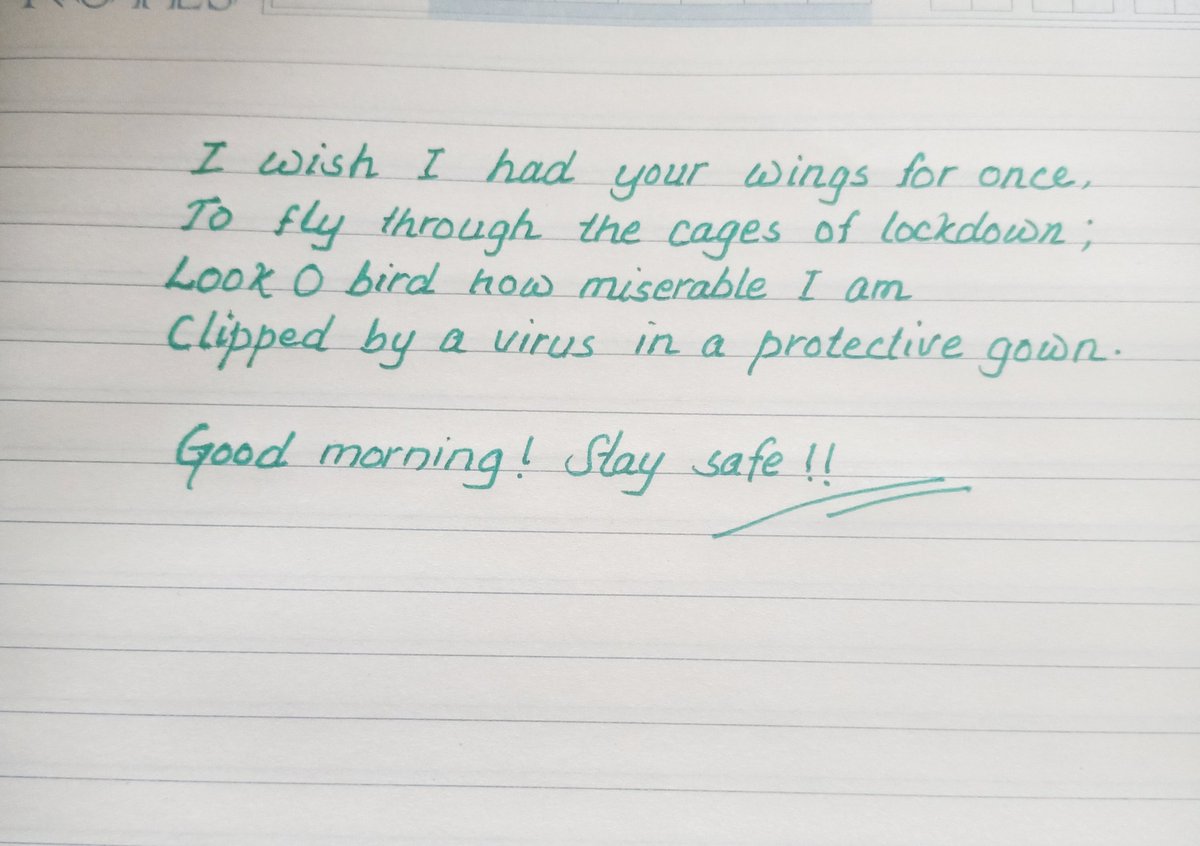 I wish I had your wings for once,
To fly through the cages of lockdown;
Look O bird how miserable I am
Clipped by a virus in a protective gown.
Good morning! Stay safe!!